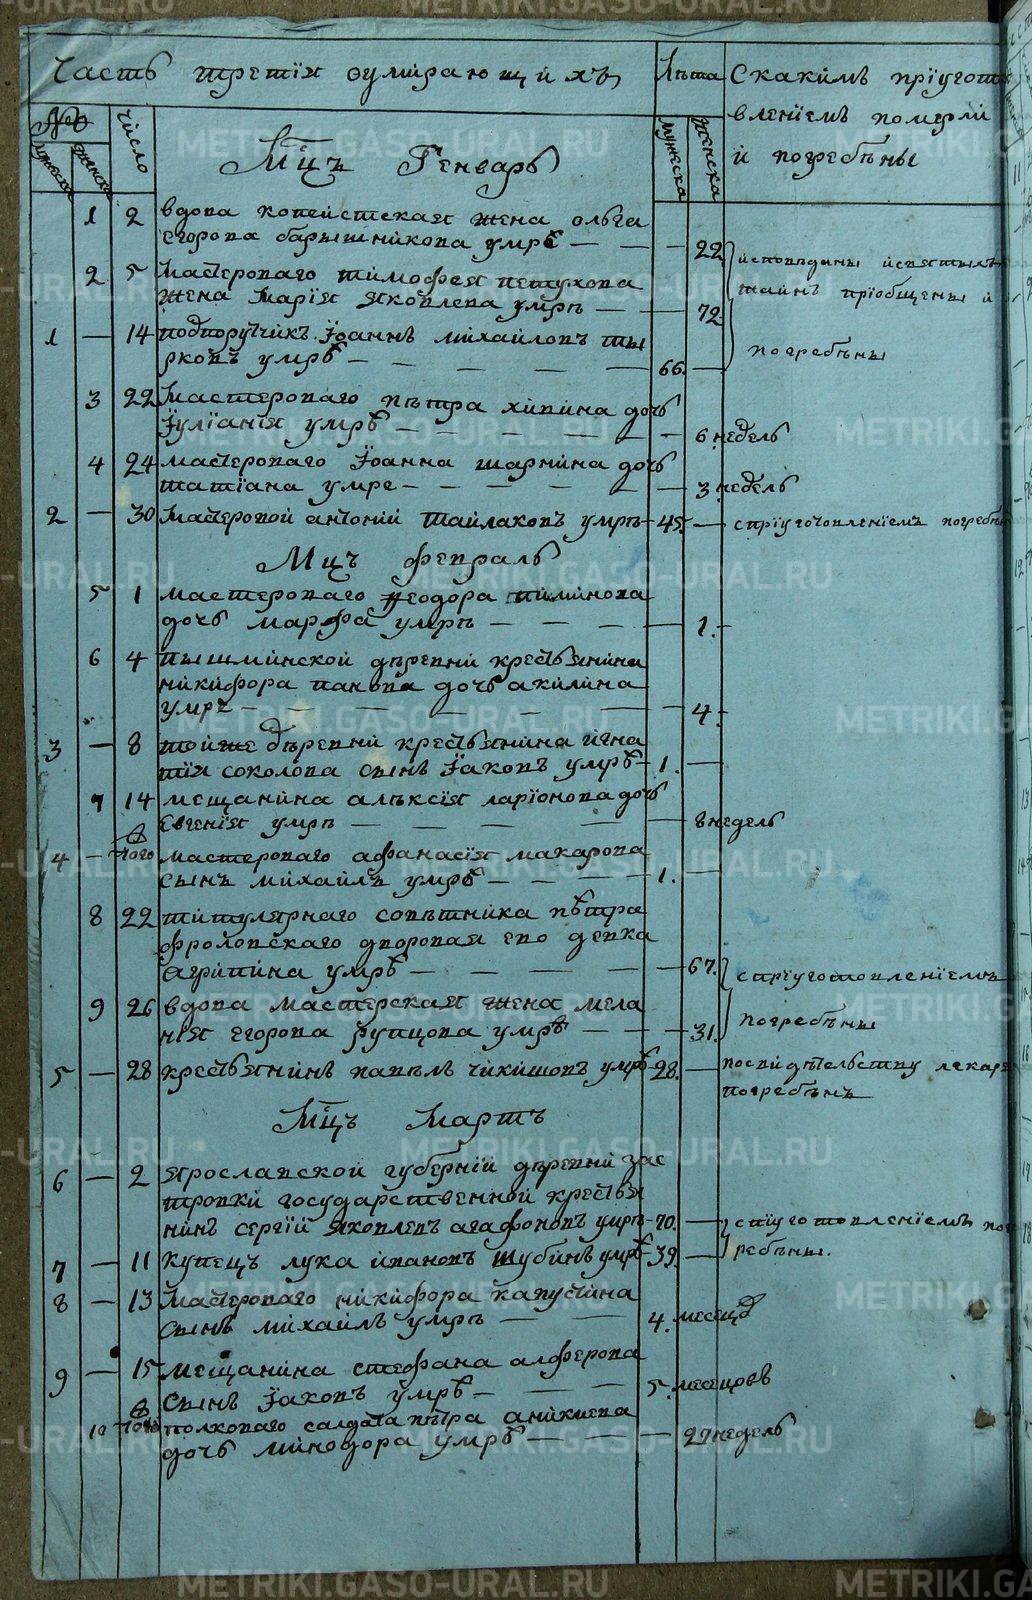 Часть третїя оумирающихъ
Лѣта
Скакимъ прїугото
влениемъ померли
и погребѣны
№
мужеска
женска
число
мужеска
женска
Мцъ Генварь
1 2 вдова копеистская жена ольга
егорова барышникова умрѣ — — — 22
исповѣданы и святыхъ
2 5 Мастероваго тимофея петухова
жена Марїя яковлева умрѣ — — 72
таинъ прїобщены и
погребѣны
1 — 14 подпорутчикъ Їоаннъ михаиловъ ты
рковъ умрѣ — — — — 66. —
3 22 Мастероваго пѣтра хипина дочь
Їулїанїя умрѣ — — — — — 6 недѣль
4 24 мастероваго Їоанна шарнина дочь
татїана умре — — — — — 3 недель
2 — 30 Мастеровой антонїй Тайлаковъ умрѣ — 45. — сприуготовленїемъ погребѣнъ
Мцъ февраль
5 1 мастероваго феодора пиминова
дочь марфа умрѣ — — — — 1.
6 4 пышминской дѣревни крестьянина
никифора панова дочь акилина
умрѣ — — — — — — 4.
3 — 8 тойже дѣревни крестьянина игна
тїя соколова сынъ Їаковъ умрѣ — 1. —
7 14 мещанина алѣксїя ларїонова дочь
Евгенїя умрѣ — — — — 8 недель
4 — того мастероваго афанасїя макарова
сынъ михаилъ умрѣ — — — 1. —
8 22 титулярнаго совѣтника пѣтра
фроловскаго дворовая ево девка
агрипина умрѣ — — — — 67.
сприуготовленїемъ
9 26 вдова мастерская жена мела
нїя егорова рупцова умрѣ — — — 31.
погребѣны
5 — 28 крестьянинъ павѣлъ чикишовъ умрѣ — 28. — посвидѣтельству лекаря
погребѣнъ
Мцъ Мартъ
6 — 2 ярославской губернїи дѣревни зас
тровки государственной крестья
нинъ сергїй яковлевъ агафоновъ умрѣ — 70. — спїуготовленїемъ пог
7 — 11 купецъ лука ивановъ шубинъ умрѣ — 39. — ребѣны.
8 — 13 Мастероваго никифора капустина
сынъ михаилъ умрѣ — — 4. месецо
9 — 15 мещанина стефана алферова
сынъ Їаковъ умрѣ — — — 5. месецовъ
10 того полковаго салдата пѣтра аникиева
дочь минодора умрѣ — — — 27 недель